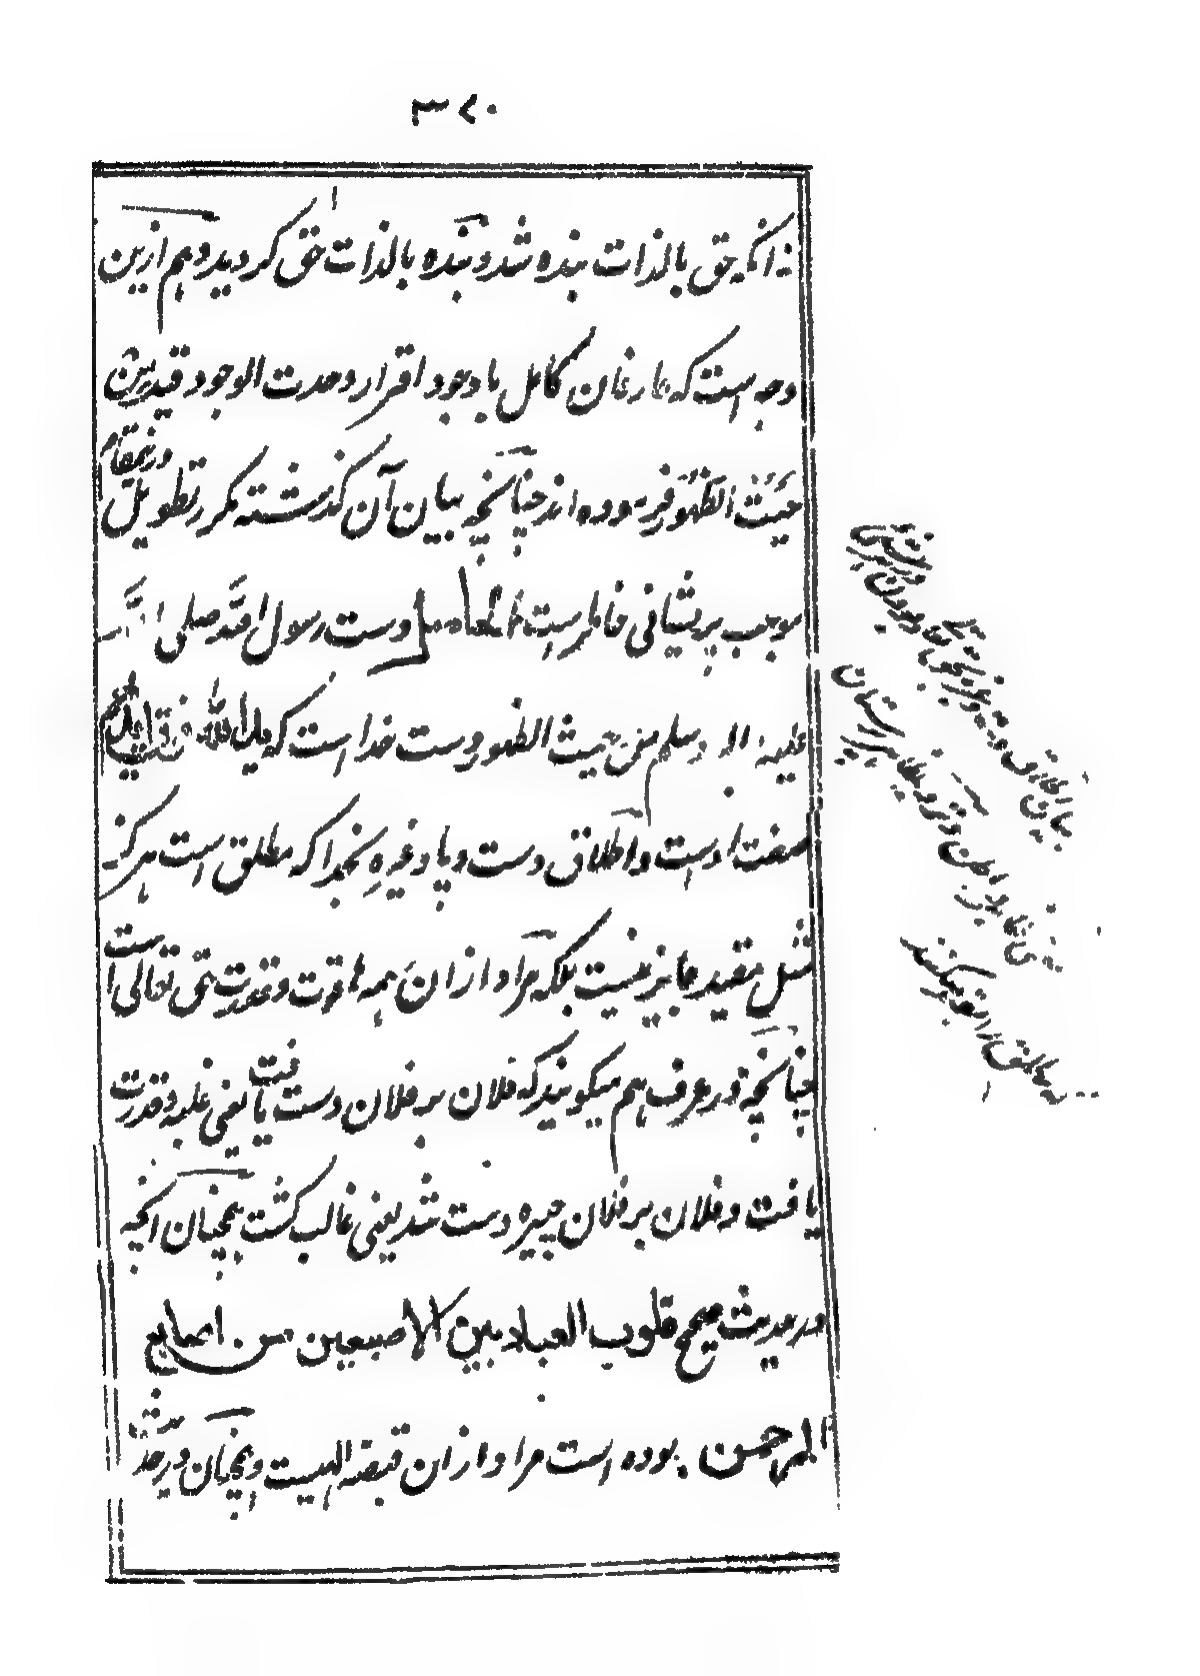 ۳۷۰
نه آنکه حق بالذات بنده شد و بنده بالذات حق گردید و هم ازین
وجه است که عارفان کامل با وجود اقرار وحدت الوجود قید من
حیث الظهور فرموده اند چنانچه بیان آن گذشته مکرر تطویل درینمقام
موجب پریشانی خاطر است الحاصل دست رسول الله صلی الله
علیه و اله وسلم من حیث الظهور دست خدا است که ید الله فوق ایدیهم
صفت اوست و اطلاق دست و پا و غیره بخدا که مطلق است هرگز
مثل مقید جایز نیست بلکه مراد ازان همه ها قوت و قدرت حق تعالی است
چنانچه در عرف هم میگویند که فلان بر فلان دست یافت یعنی غلبه و قدرت
یافت و فلان بر فلان چیره دست شد یعنی غالب گشت همچنان آنچه
در حدیث صحیح قلوب العباد بین الاصبعین من اصابع
الرحمن بوده است مراد ازان قبضه الهیست و همچنان در حدیث